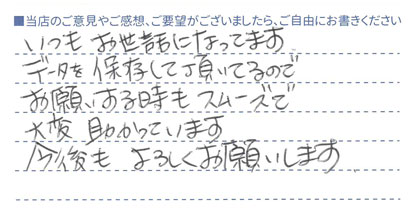 ■当店のご意見やご感想、ご要望がございましたら、ご自由にお書きください
いつも お世話になってます
データを保存して頂いてるので
お願いする時も スムーズで
大変 助かっています
今後も よろしくお願いします